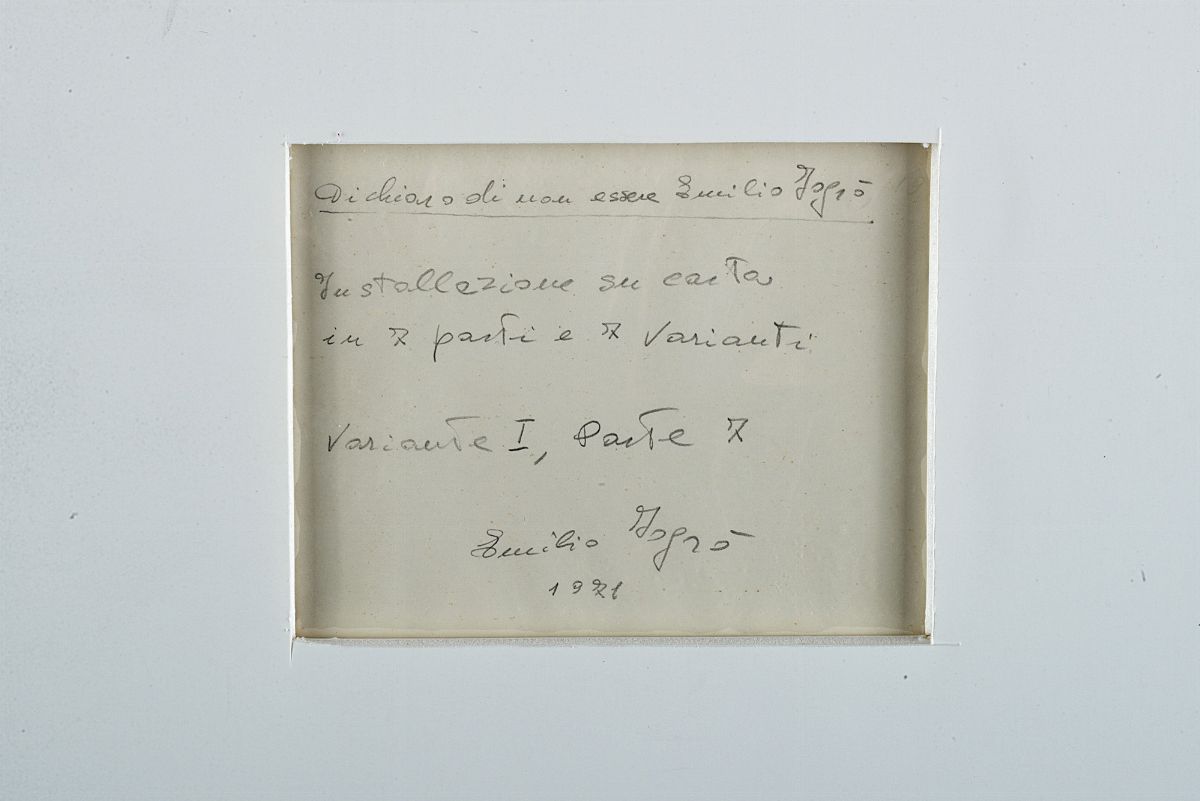 Dichiaro di non essere Emilio Isgrò
Installazione su carta
in 7 parti e 7 varianti
Variante I, Parte 7
Emilio Isgrò
1971